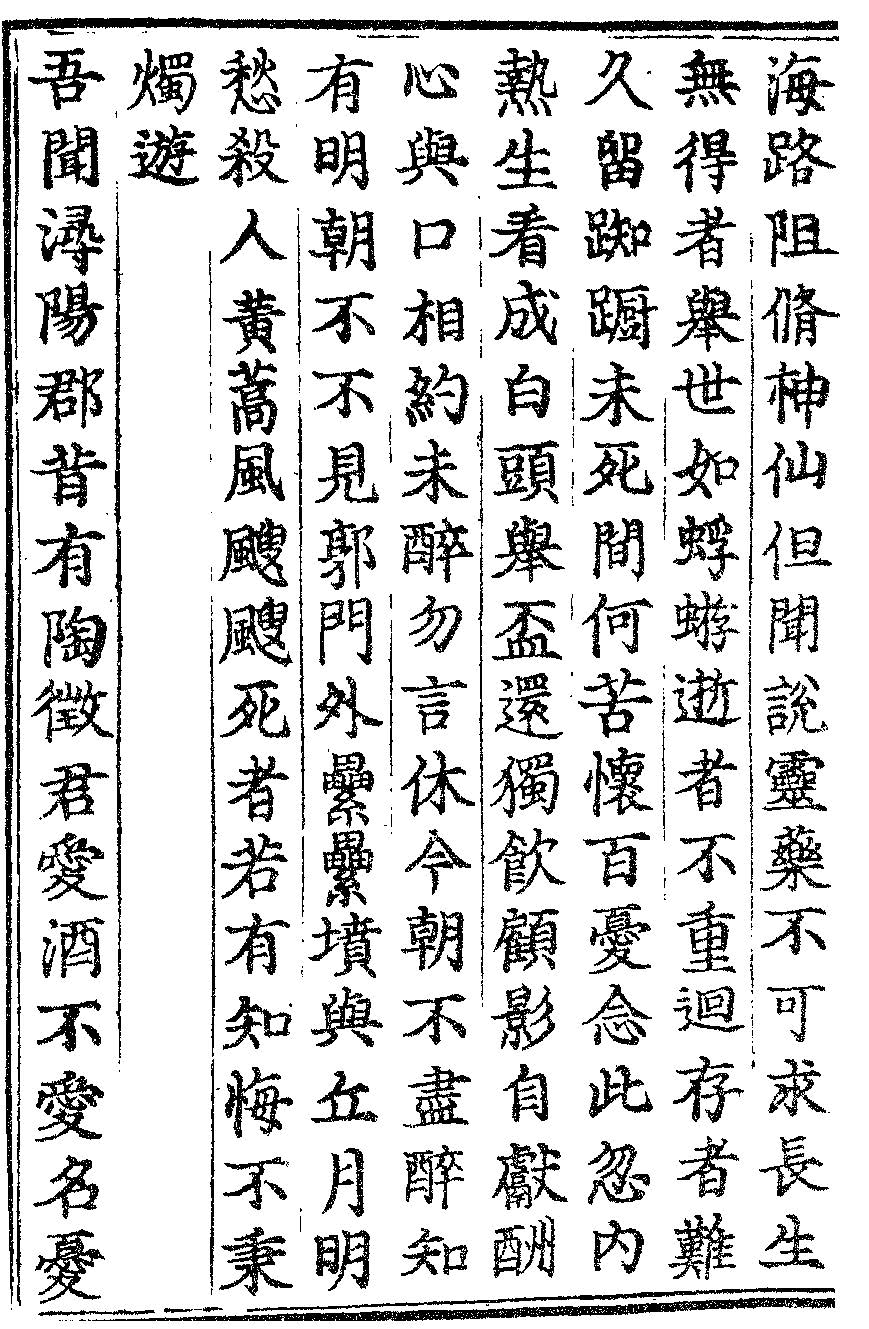 海路阻脩神仙但聞說靈藥不可求長生
無得者舉世如蜉蝣逝者不重迴存者難
久留踟躕未死間何苦懷百憂念此忽内
熱生看成白頭舉盃還獨飲顧影自獻酬
心與口相約未醉勿言休今朝不盡醉知
有明朝不不見郭門外纍纍墳與丘月明
愁殺人黄蒿風颼颼死者若有知悔不秉
燭遊
吾聞潯陽郡昔有陶徵君愛酒不愛名憂